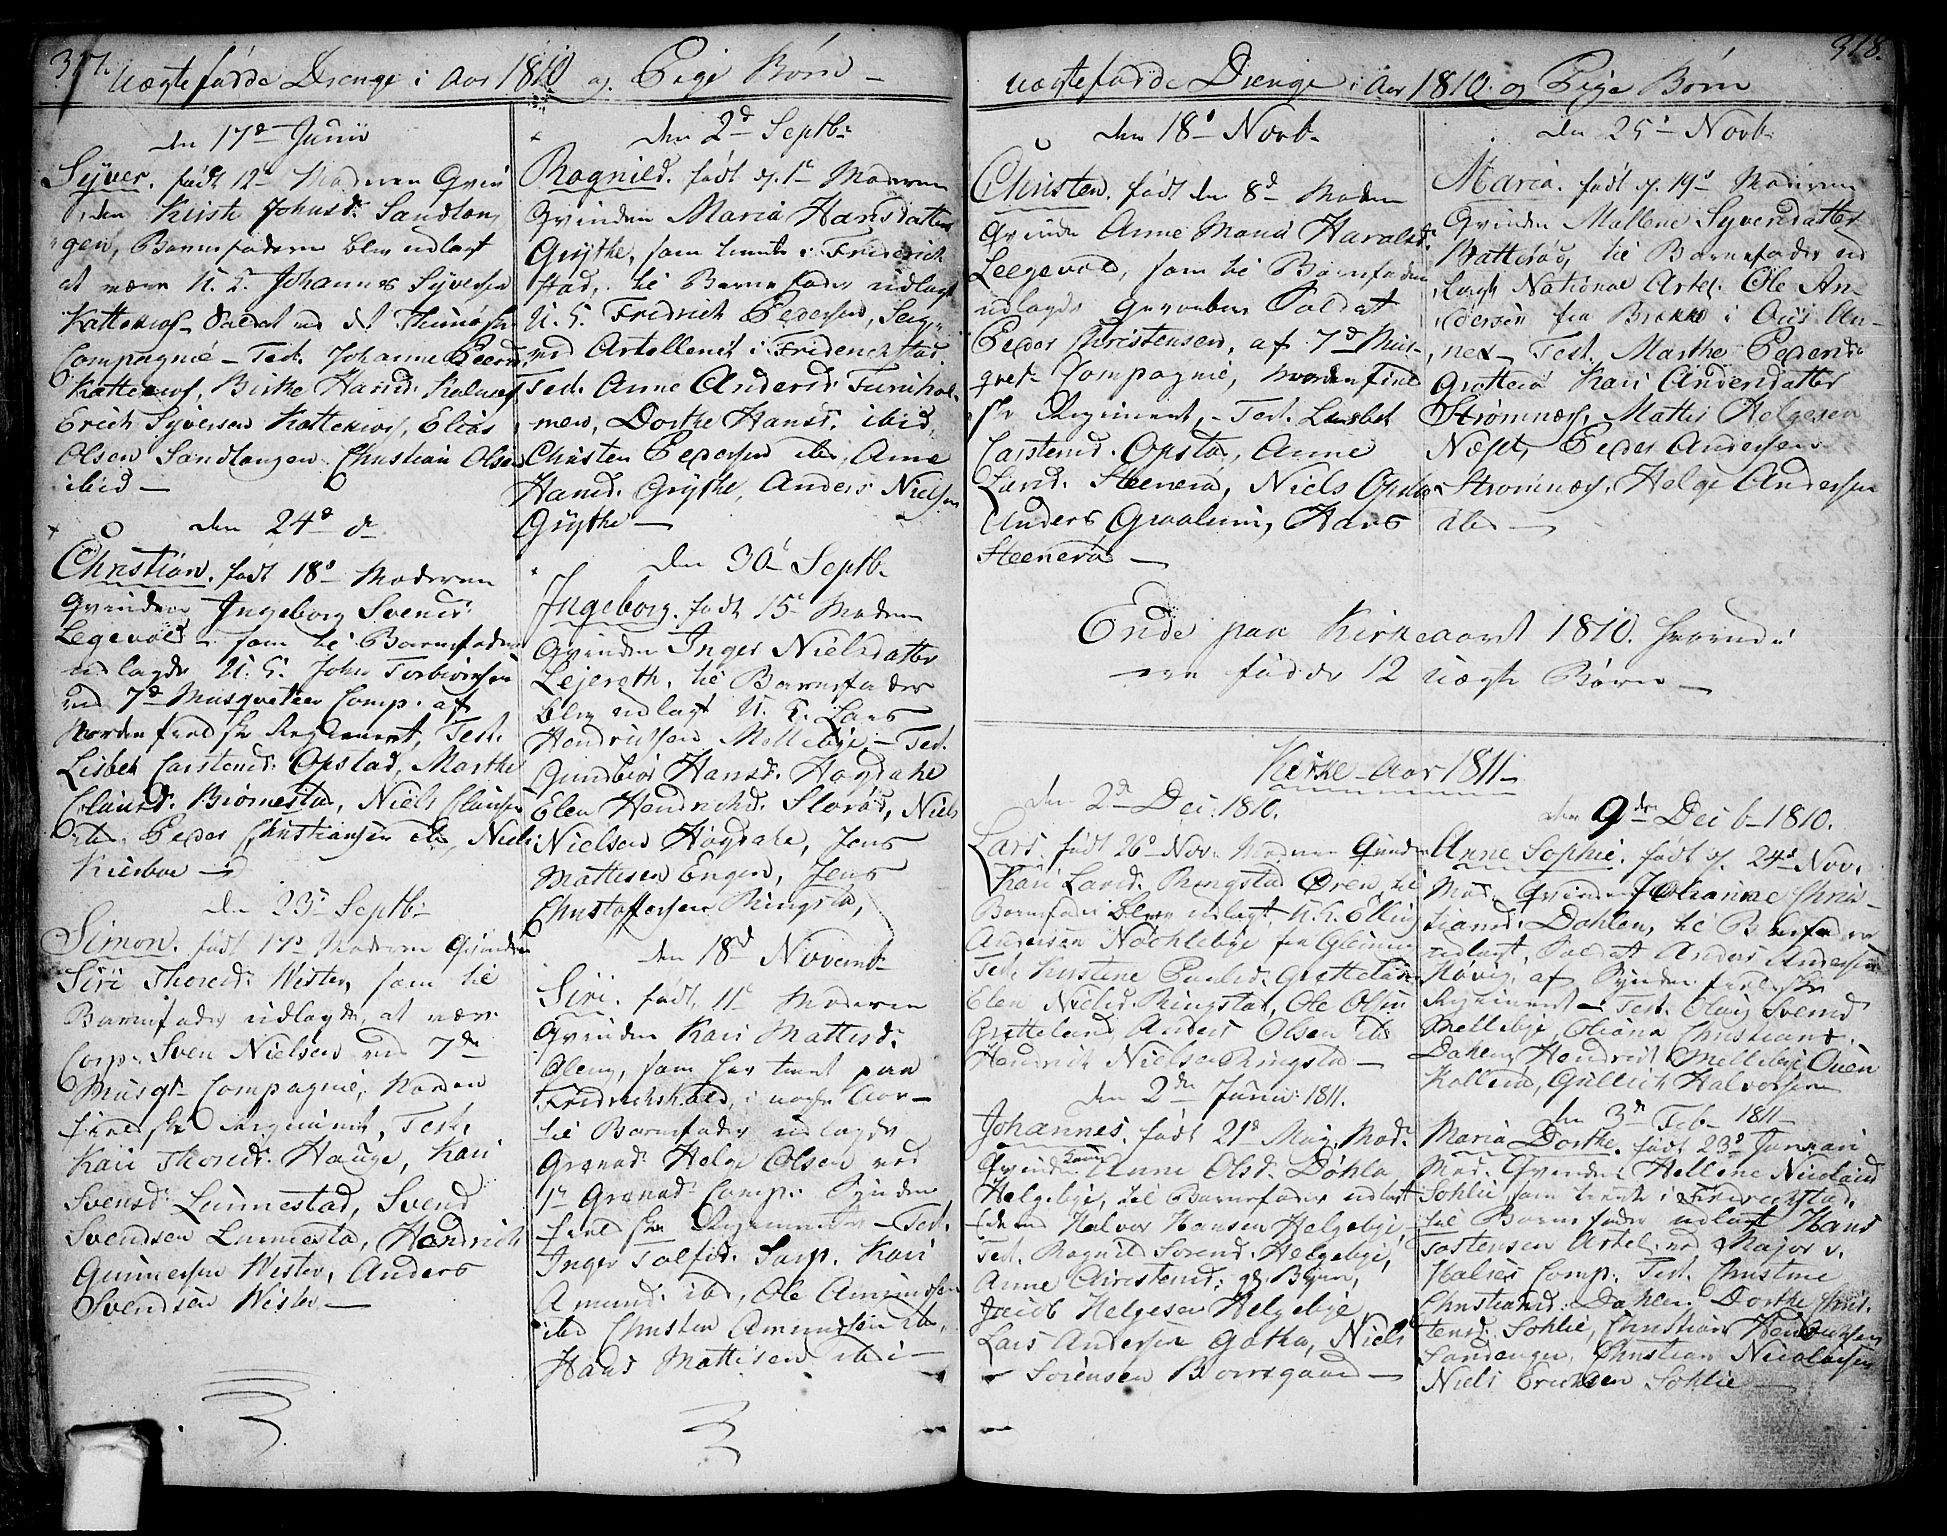 317.
Uægtefødde Drenge i Aar 1810 og Pige Børn
den 17d Junii
Syver. født 12d Moderen Qvin
den Kirsti Johnsd. Sandtan
gen, Barnefaderen blev udlagt
at være U. L. Johannes Syversen
Kattenios Soldat ved det
Compagnie Test. Johanne Peersd
Kattenios, Birthe Hansd.
Erich Syversen Kattenios, Elias
Olsen Sandtangen Christian Olsen
ibid
den 24d do
Christian. født 18d Moderen
Qvinden Ingeborg Svensd.
Legevold som til Barnefader
udlagde U. C. John Torbiørnsen
ved 7d Musqueteer Comp. af
Nordenfieldske Regiment, Test.
Lisbeth Carstensd. Opstad, Marthe
Clausd. Biørnestad, Niels Clausen
ibd Peder Christiansen ibd, Niels
Kiersboe
den 23d Septb.
Simon. født 17d Moderen Qvinden
Siri Thoresd. Wister, som til
Barnefader udlagde, at være
Corp. Sven Nielsen ved 7de
Musqt. Compagnie, Norden
fieldske Regiment, Test.
Kari Thoresd. Hauge, Kari
Svensd. Lunnestad, Svend
Svendsen Lunnestad, Hendrich
Gunnersen Wister, Anders
Svendsen Wister
den 2d Septb.
Ragnild. født d. 1d Moderen
Qvinden Maria Hansdatter
Grythe, som tiente i Friderich
stad, til Barnefader udlagt
U. C. Fridrich Pedersen,
ved Artelleriet i Friderichstad.
Test. Anne Andersd. Furuhol-
men, Dorthe Hansd. ibid,
Christen Pedersen ibd, Anne
Hansd. Grythe, Anders Nielsen
Grythe
den 30d Septb.
Ingeborg. født 15d Moderen
Qvinden Inger Nielsdatter
Lejereth, til Barnefader
blev udlagt U. C. Lars
Hendrichsen Mellebye Test.
Gunbiør Hansd. Høgdahl
Elen Hendrichsd. Storød, Niels
Nielsen Høgdahl, Jens
Mattisen Engen, Jens
Christoffersen Ringstad,
den 18d Novemb.
Siri. født 11d Moderen
Qvinden Kari Mattisd.
Oleng, som har tient paa
Fridrichshald, i Aar
til Barnefader udlagde
Grenad. Helge Olsen ved
1d Grenad. Comp. Synden
fieldske Regimenter Test.
Inger Tolfsd. Sarp, Kari
Amunds. ibd, Ole Amundsen
ibd Christen Amundsen ibd,
Hans Mattisen ibd
318.
Uægtefødde Drenge i Aar 1810. og Pige Børn
den 18d Novb.
Christen. født den 8d Moderen
Qvinden Anne Maria Haralsd.
Leegevold, som til Barnefader
udlagde gevorben Soldat
Peder Christensen, af 7d Mus-
quet. Compagnie, Nordenfield
ske Regiment, Test. Lisbet
Carstensd. Opstad, Anne
Larsd. Steenerød, Niels Opstad
Anders Graalum, Hans
Steenerød
den 25d Novb.
Maria. født d. 19d Moderen
Qvinden Mallene Syversdatter
Katterød, til Barnefader ud
lagt National Artel. Ole An-
dersen fra Brekke i Aais An-
nex Test. Marthe Pedersd.
Grotterød Kari Andersdatter
Strømnæss, Mattis Helgesen
Næset, Peder Andersen
Strømnæss, Helge Andersen
ibd
Ende paa Kirkeaaret 1810. hvorudi
ere fødde 12 Uægte Børn
Kirke-Aar 1811
den 2d Dec. 1810.
Lars. født 26d Nov. Moderen Qvinden
Kari Larsd. Ringstad Øren, til
Barnefader blev udlagt U. C. Elling
Andersen Nøchlebye fra Glemmen
Test. Kirstine Paulsd. Grotteland
Elen Nielsd. Ringstad, Ole Olsen
Gretteland Anders Olsen ibd
Henrich Nielsen Ringstad
den 2den Junii 1811.
Johannes. født 21d May, Mod.
Qvinden Karen Anne Olsd. Døhlen
Helgebye, til Barnefader udlagt
Halvor Hansen Helgebye,
Test. Ragnild Sørensd. Helgebye,
Anne Christensd.
Jacob Helgesen Helgebye,
Lars Andersen Gatha, Niels
Sørensen Borregaard
den 9den Decb. 1810.
Anne Sophie. født d. 24d Nov.
Mod. Qvinden Johanne Chris-
tiansd. Dahlen, til Barnefader
udlagt, Soldat Anders Andersen
Høvig, af Syndenfieldske
Regiment Test. Oloug Svensd
Mellebye, Oliana Christiansd.
Dahlen, Hendrich Mellebye, Ouen
Kollerød, Gullich Halvorsen
den 3d Feb. 1811
Maria Dorthe. født 23d Januari
Mod. Qvinden Hellene Nicolaisd
Sohlie, som tiente i Friderichstad,
til Barnefader udlagt Hans
Tostensen Artel. ved Major v.
Halses Comp. Test. Christine
Christiansd. Dahlen. Dorthe Chris-
tensd. Sohlie, Christian Hendrichsen
Sandengen, Christian Nicolaisen
Niels Erichsen Sohlie